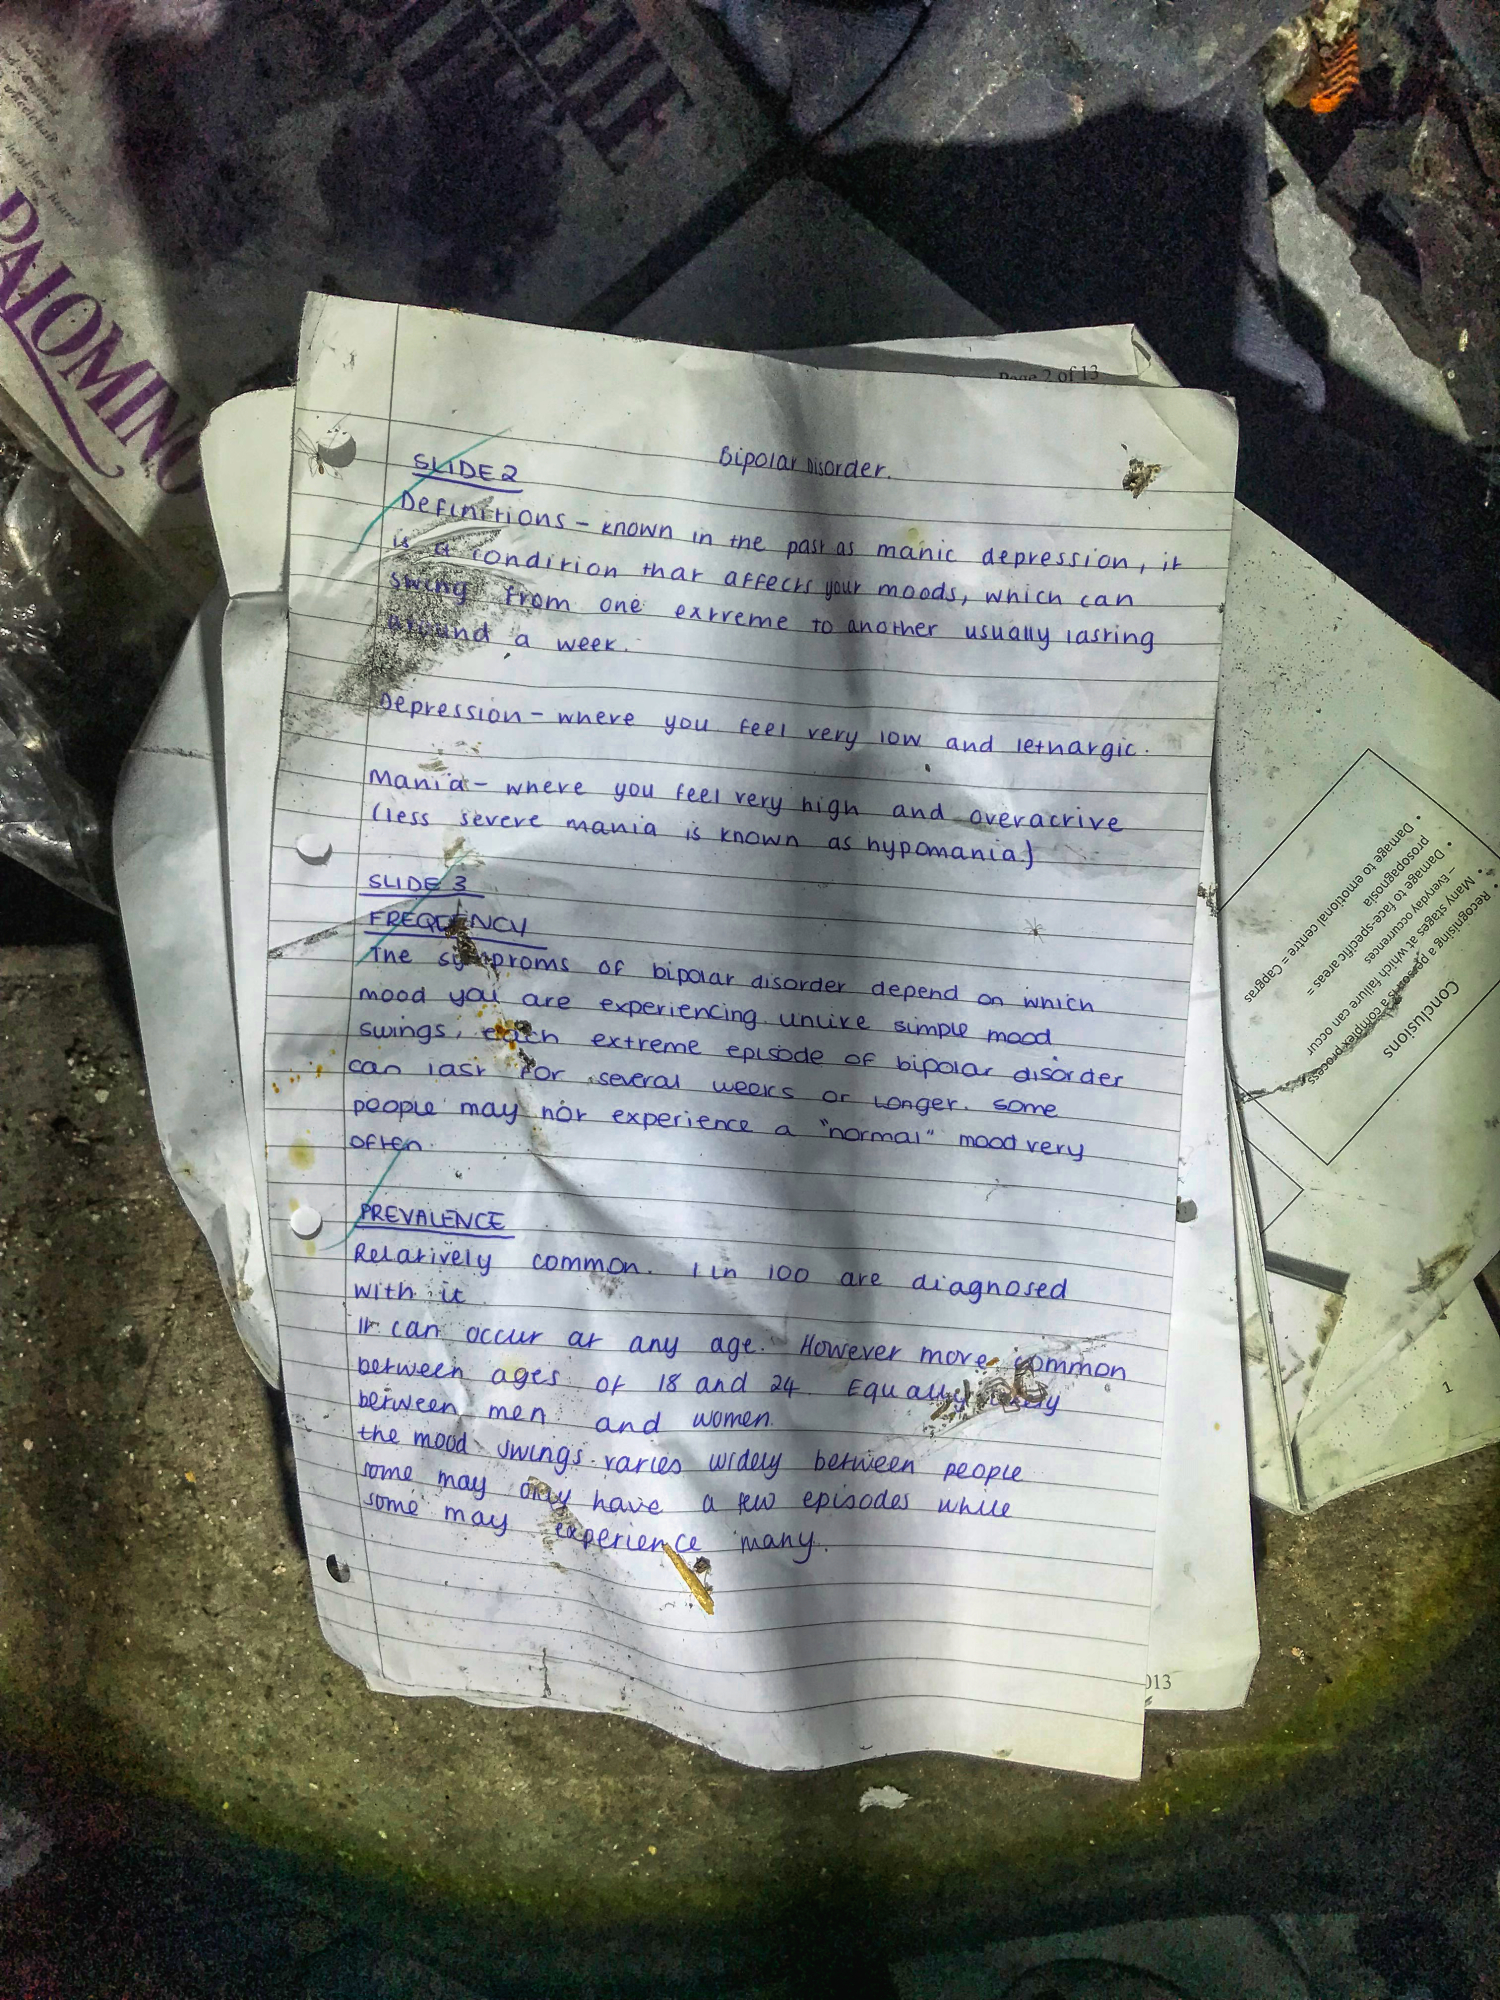 PALOMINO
Page 2 of 13
Bipolar Disorder.
SLIDE 2
Definitions - known in the past as manic depression, it
is a condition that affects your moods, which can
swing from one extreme to another usually lasting
around a week.
Depression - where you feel very low and lethargic.
Mania - where you feel very high and overactive
(less severe mania is known as hypomania)
SLIDE 3
FREQUENCY
The symptoms of bipolar disorder depend on which
mood you are experiencing. Unlike simple mood
swings, each extreme episode of bipolar disorder
can last for several weeks or longer. Some
people may not experience a "normal" mood very
often.
PREVALENCE
Relatively common. 1 in 100 are diagnosed
with it
It can occur at any age. However more common
between ages of 18 and 24 Equally likely
between men and women.
the mood swings varies widely between people
some may only have a few episodes while
some may experience many.
013
Conclusions
• Recognising a person is a complex process
• Many stages at which failure can occur
– Everyday occurrences
• Damage to face-specific areas =
prosopagnosia
• Damage to emotional centre = Capgras
1